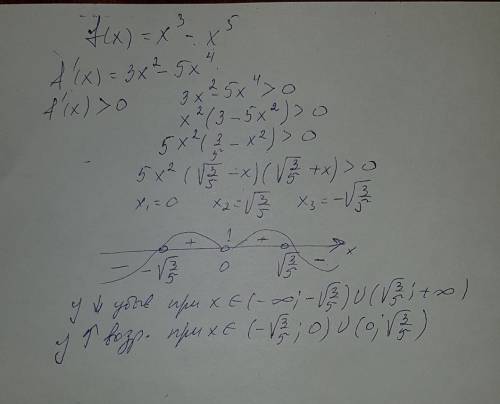 f(x) = x³ - x⁵
f'(x) = 3x² - 5x⁴
f'(x) > 0 3x² - 5x⁴ > 0
x²(3 - 5x²) > 0
5x²(3/5 - x²) > 0
5x²(√(3/5) - x)(√(3/5) + x) > 0
x₁ = 0 x₂ = √(3/5) x₃ = -√(3/5)
- + 1 + - x
-√(3/5) 0 √(3/5)
y ↓ убыв при x ∈ (-∞; -√(3/5)) ∪ (√(3/5); +∞)
y ↑ возр. при x ∈ (-√(3/5); 0) ∪ (0; √(3/5))